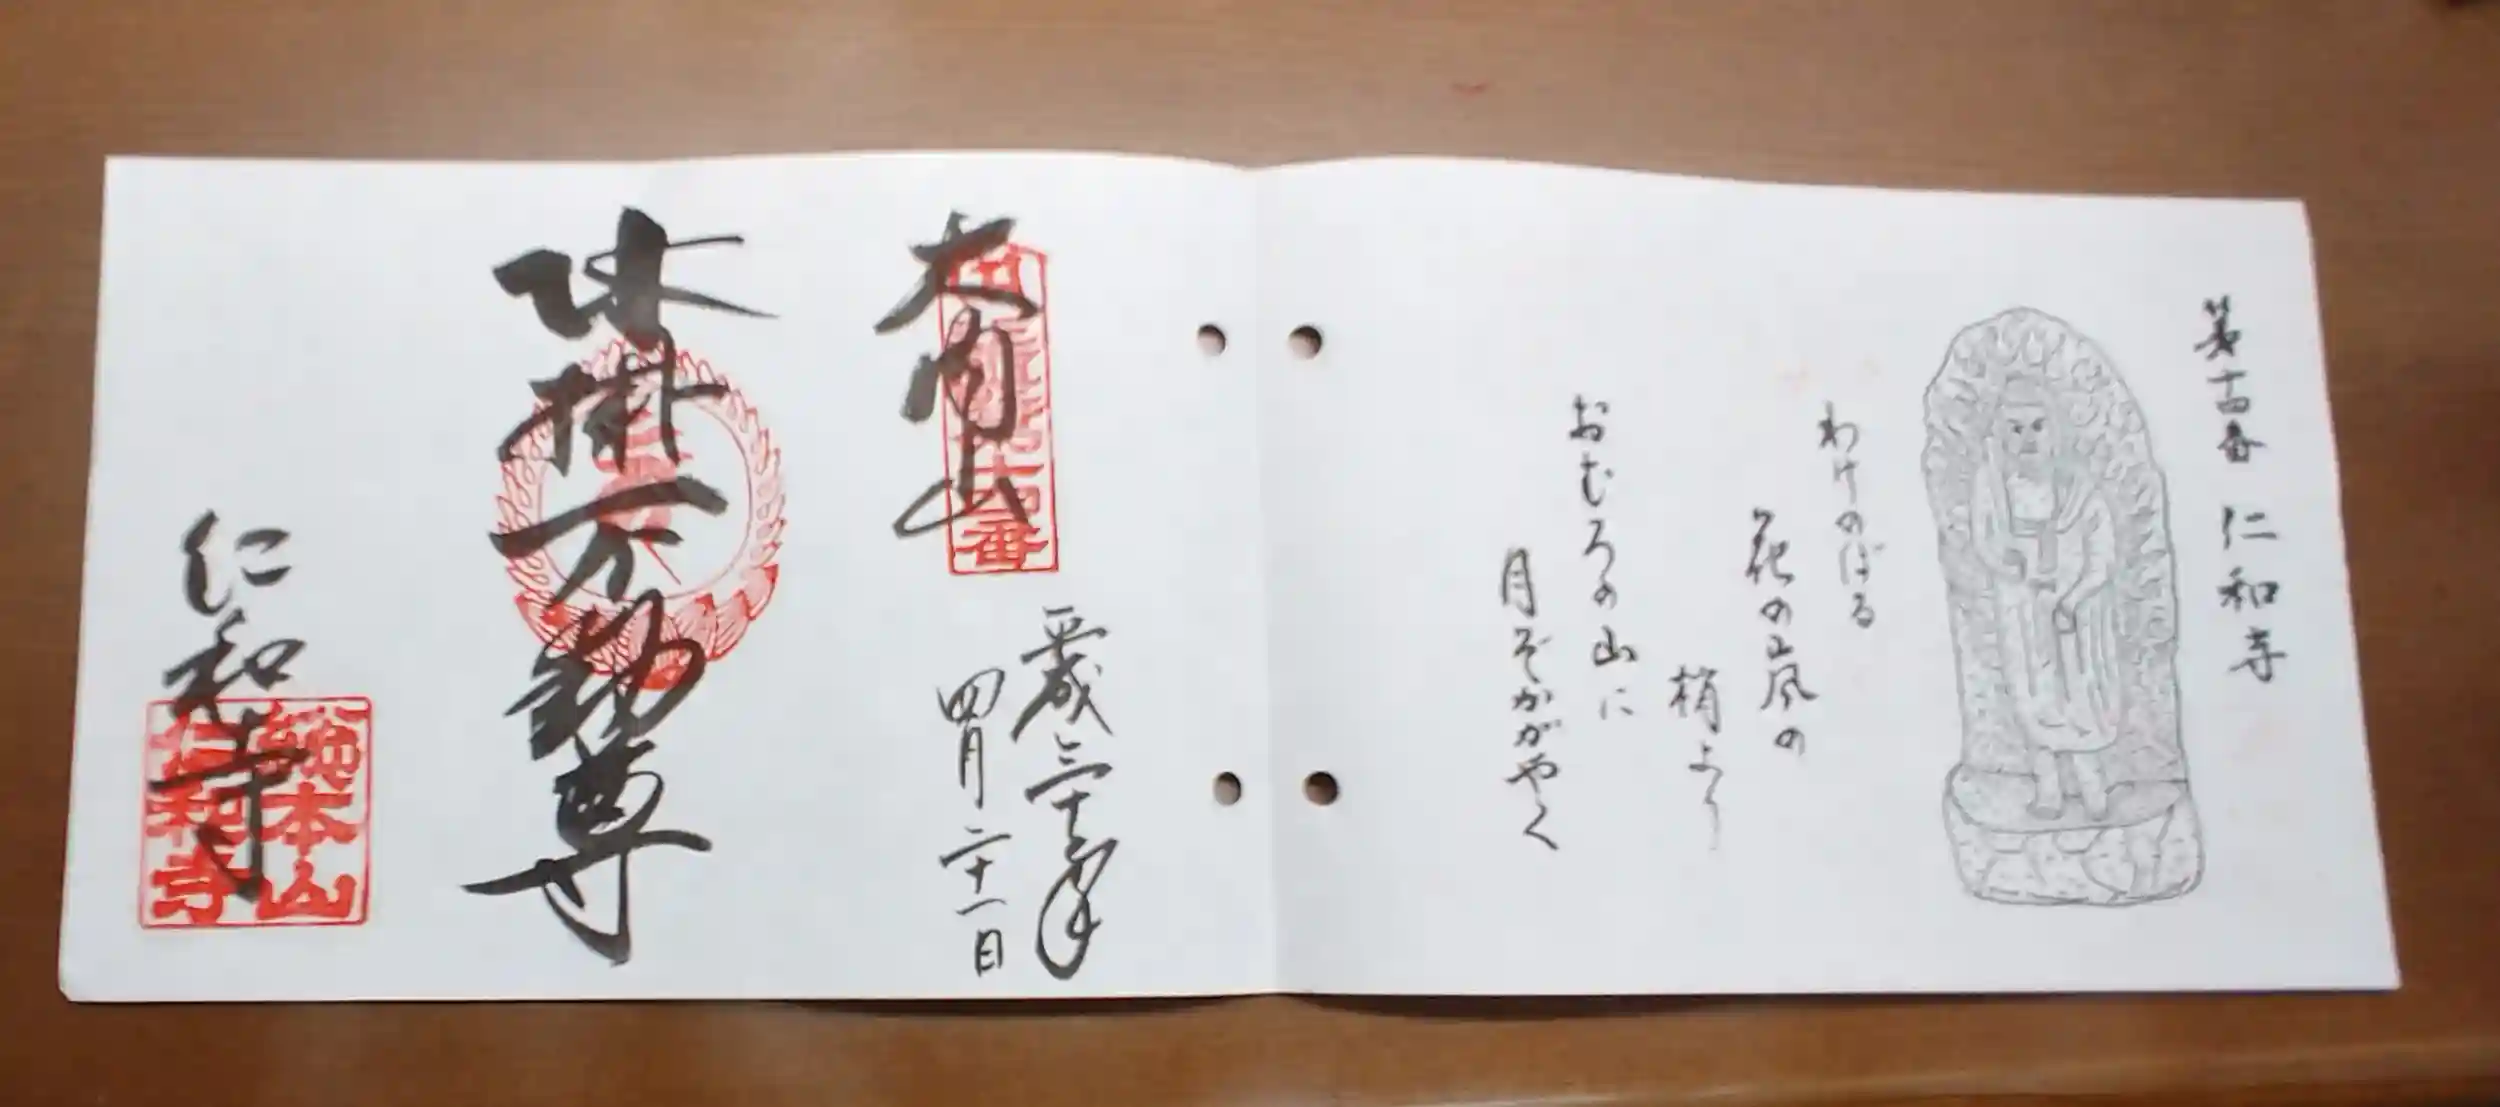 第十四番 仁和寺
わけのぼる
花の嵐の
梢より
おむろの山に
月ぞかがやく
大内山
十四番
平成
四月二十一日
水掛不動尊
仁和寺
総本山
仁和寺